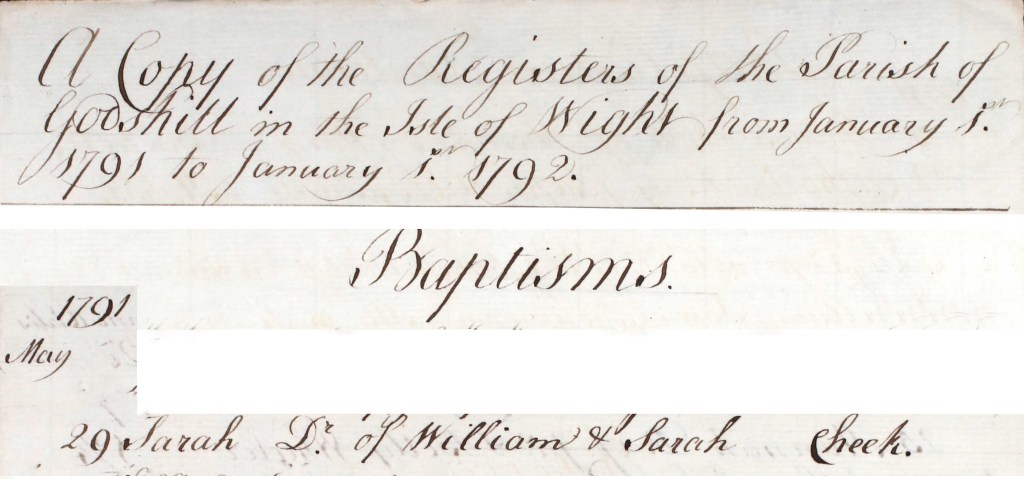 A Copy of the Registers of the Parish of
Godshill in the Isle of Wight from January 1.st
1791 to January 1.st 1792.
Baptisms.
1791
May
29 Sarah Dr. of William & Sarah Cheek.